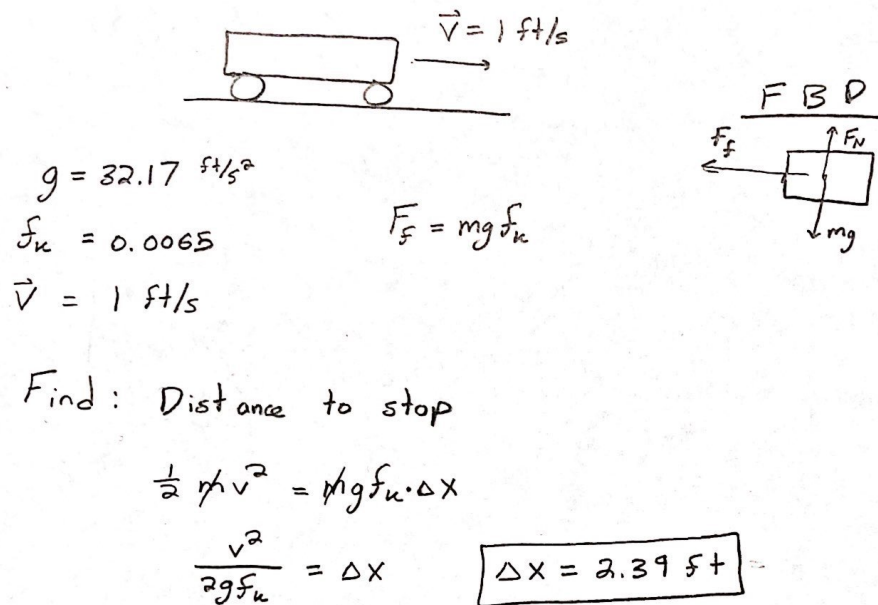 v⃗ = 1 ft/s
F B D
F_f
F_N
mg
g = 32.17 ft/s²
f_k = 0.0065
F_f = mg f_k
v⃗ = 1 ft/s
Find : Distance to stop
½ m v² = m g f_k · Δx
v² / 2g f_k = Δx
Δx = 2.39 ft